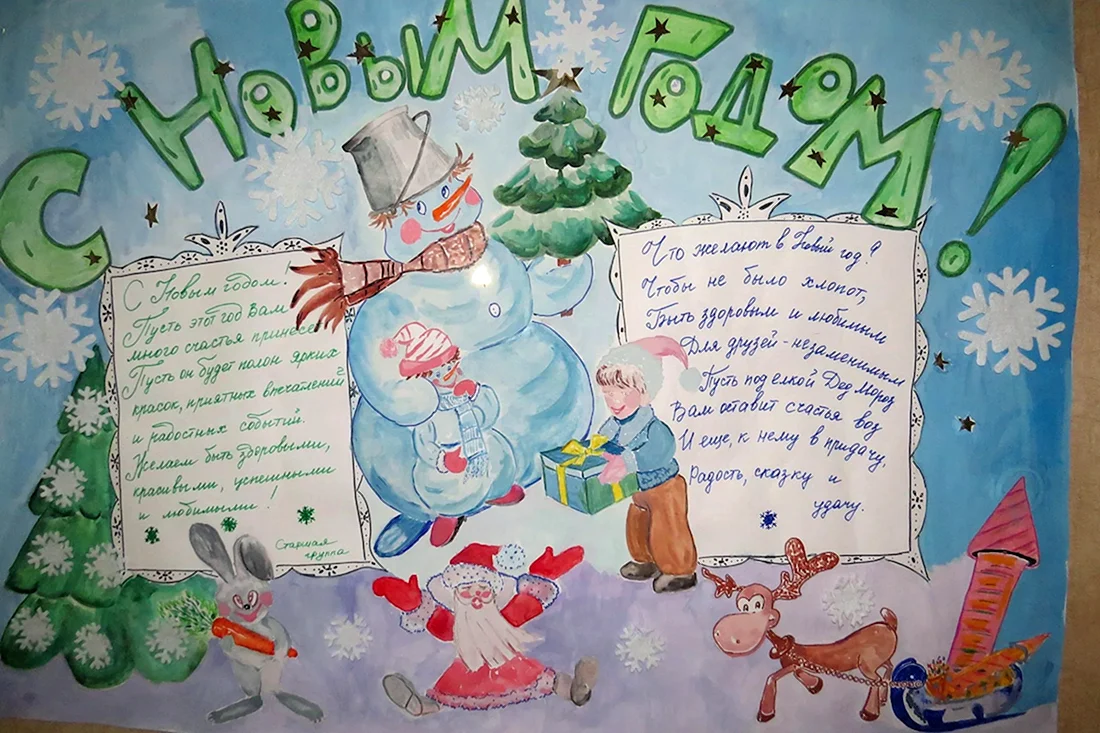 С Новым Годом!
С Новым годом!
Пусть этот год Вам
много счастья принесе
Пусть он будет полон ярких
красок, приятных впечатлений
и радостных событий.
Желаем быть здоровыми,
красивыми, успешными
и любимыми!
Старшая
группа
Что желают в Новый год?
Чтобы не было хлопот,
Быть здоровым и любимым
Для друзей - незаменимым
Пусть под елкой Дед Мороз
Вам оставит счастья воз
И еще, к нему в придачу,
Радость, сказку и
удачу.